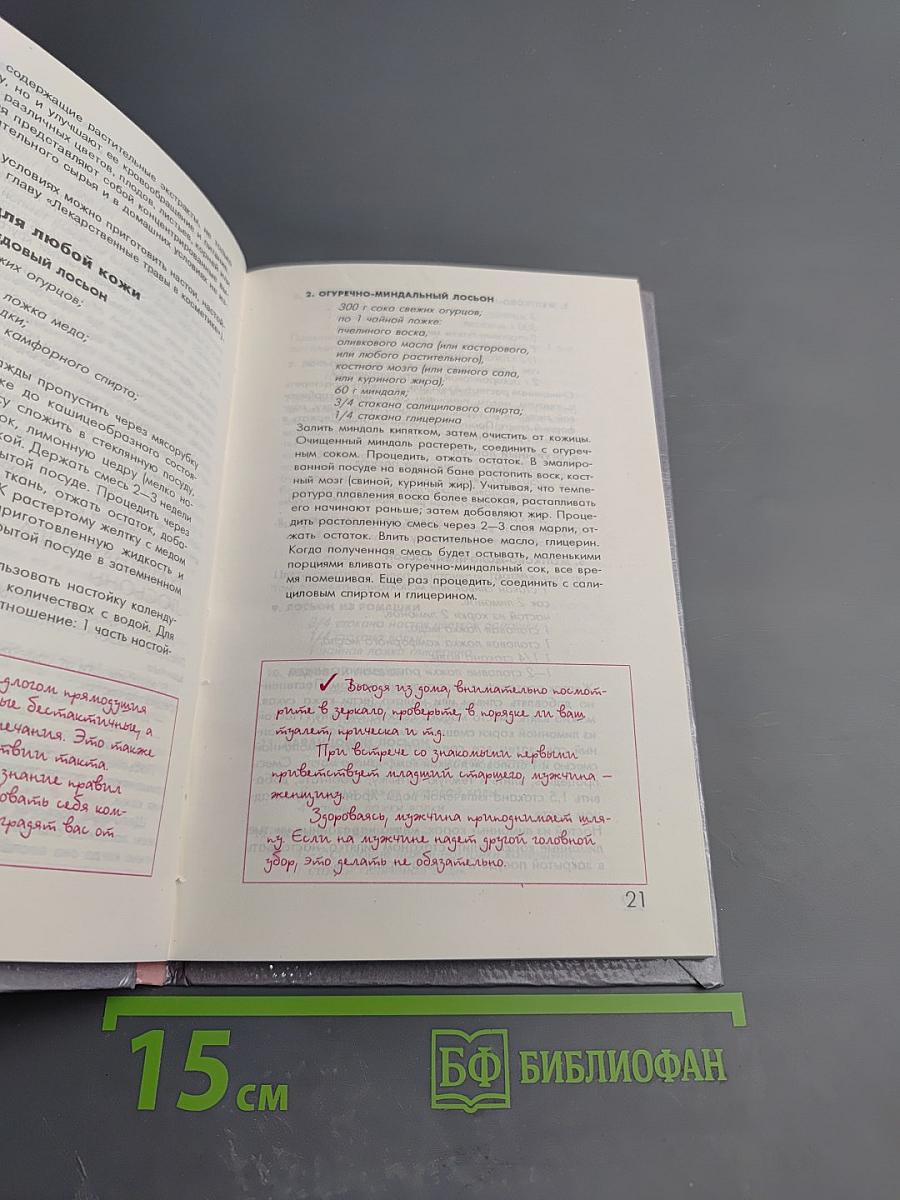 содержащие растительные экстракты, не только
у, но и улучшают ее кровообращение и питание
различных цветов, плодов, листьев, корней или
я представляют собой концентрированные
тительного сырья и в домашних условиях не
условиях можно приготовить настои, настой-
главу «Лекарственные травы в косметике»).
для любой кожи
едовый лосьон
жих огурцов;
ложка меда;
дки;
камфорного спирта;
ажды пропустить через мясорубку
же до кашицеобразного состоя-
су сложить в стеклянную посуду,
ок, лимонную цедру (мелко на-
кой. Держать смесь 2—3 недели
рытой посуде. Процедить через
ткань, отжать остаток, доба-
К растертому желтку с медом
приготовленную жидкость и
крытой посуде в затемненном
льзовать настойку календу-
количествах с водой. Для
отношение: 1 часть настой-
длогом прямодушия
ые бестактичные, а
речания. Это также
твии такта.
знание правил
овать себя ком-
градят вас от
2. ОГУРЕЧНО-МИНДАЛЬНЫЙ ЛОСЬОН
300 г сока свежих огурцов;
по 1 чайной ложке:
пчелиного воска,
оливкового масла (или касторового,
или любого растительного),
костного мозга (или свиного сала,
или куриного жира);
60 г миндаля;
3/4 стакана салицилового спирта;
1/4 стакана глицерина
Залить миндаль кипятком, затем очистить от кожицы.
Очищенный миндаль растереть, соединить с огуреч-
ным соком. Процедить, отжать остаток. В эмалиро-
ванной посуде на водяной бане растопить воск, кост-
ный мозг (свиной, куриный жир). Учитывая, что темпе-
ратура плавления воска более высокая, растапливать
его начинают раньше; затем добавляют жир. Проце-
дить растопленную смесь через 2—3 слоя марли, от-
жать остаток. Влить растительное масло, глицерин.
Когда полученная смесь будет остывать, маленькими
порциями вливать огуречно-миндальный сок, все вре-
мя помешивая. Еще раз процедить, соединить с сали-
циловым спиртом и глицерином.
✓ Выходя из дома, внимательно посмот-
рите в зеркало, проверьте, в порядке ли ваш
туалет, прическа и т.д.
При встрече со знакомыми первыми
приветствует младший старшего, мужчина —
женщину.
Здороваясь, мужчина приподнимает шля-
пу. Если на мужчине надет другой головной
убор, это делать не обязательно.
21
15 см
БФ БИБЛИОФАН